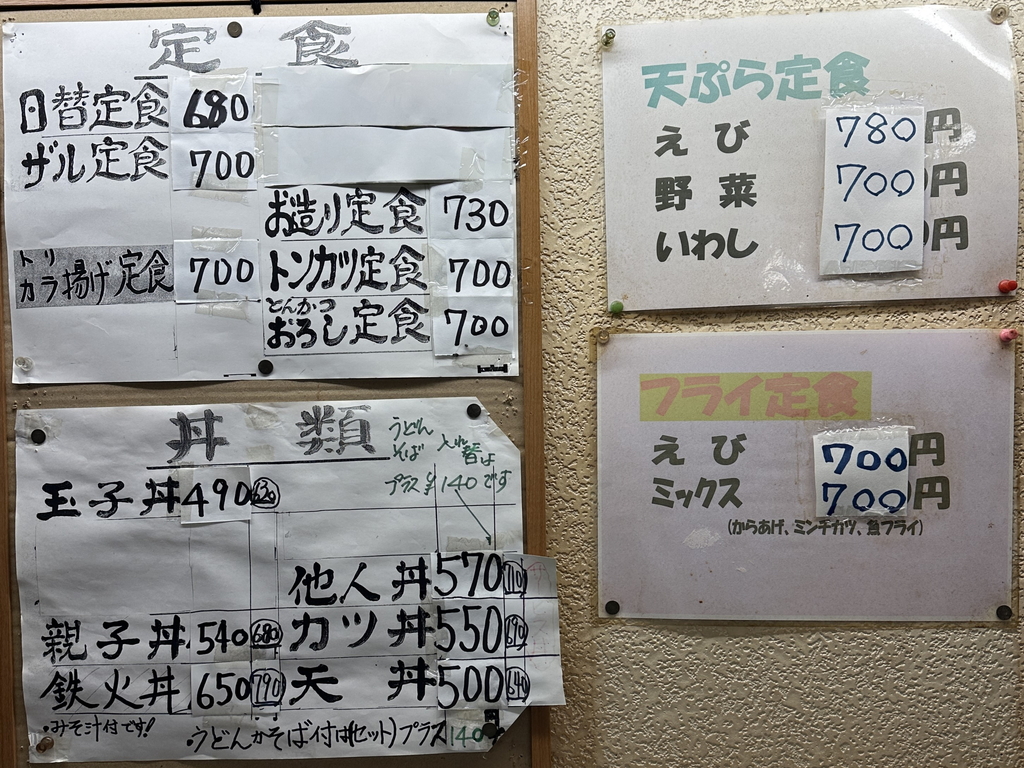 定食
日替定食 680
ザル定食 700
お造り定食 730
トリ
カラ揚げ定食 700
トンカツ定食 700
とんかつ
おろし定食 700
丼類
うどん
そば 入れ替は
プラス¥140です
玉子丼 490 620
他人丼 570 710
親子丼 540 680
カツ丼 550 690
鉄火丼 650 790
天丼 500 640
・みそ汁付です!
・うどんかそば付は(セット)プラス140
天ぷら定食
えび 780円
野菜 700円
いわし 700円
フライ定食
えび 700円
ミックス 700円
(からあげ、ミンチカツ、魚フライ)